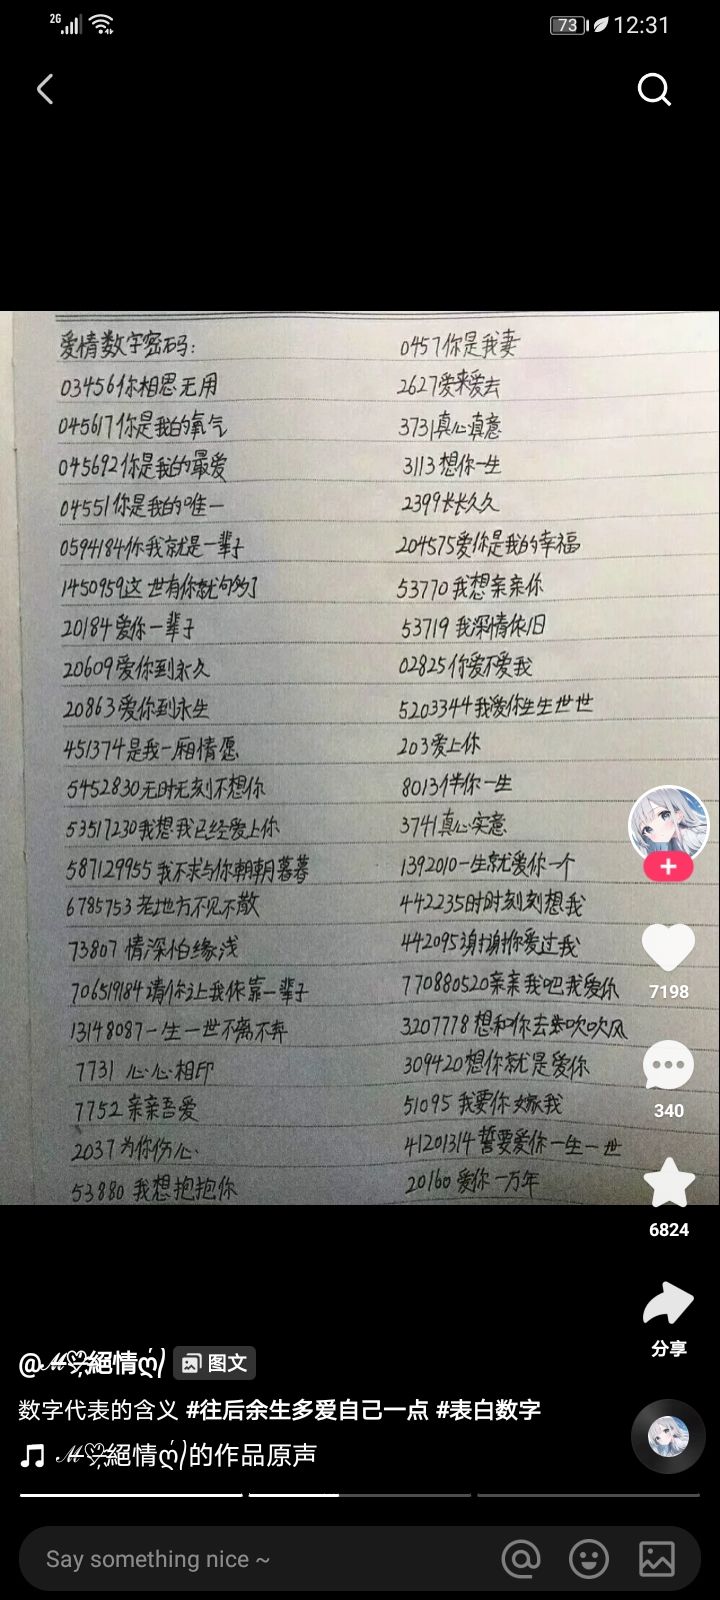 2G
73
12:31
爱情数字密码:
03456你相思无用
045617你是我的氧气
045692你是我的最爱
04551你是我的唯一
0594184你我就是一辈子
1450959这世有你就够了
20184爱你一辈子
20609爱你到永久
20863爱你到永生
451374是我一厢情愿
5452830无时无刻不想你
53517230我想我已经爱上你
587129955我不求与你朝朝暮暮
6785753老地方不见不散
73807情深怕缘浅
706519184请你让我依靠一辈子
13148087一生一世不离不弃
7731心心相印
7752亲亲吾爱
2037为你伤心
53880我想抱抱你
0457你是我妻
2627爱来爱去
3731真心真意
3113想你一生
2399长长久久
204575爱你是我的幸福
53770我想亲亲你
53719我深情依旧
02825你爱不爱我
5203344我爱你生生世世
203爱上你
8013伴你一生
3741真心实意
1392010一生就爱你一个
442235时时刻刻想我
442095谢谢你爱过我
770880520亲亲我吧我爱你
3207778想和你去吹吹风
309420想你就是爱你
51095我要你嫁我
41201314誓要爱你一生一世
20160爱你一万年
7198
340
6824
分享
@ℳ絕情ღ᭄ 图文
数字代表的含义 #往后余生多爱自己一点 #表白数字
ℳ絕情ღ᭄的作品原声
Say something nice ~